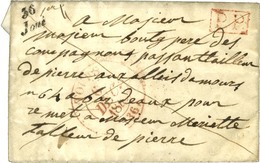 36
Joué
P.P.
a Monsieur
Monsieur bouty pere des
compagnons passant tailleur
de pierre aux allées damours
n 64 a bordeaux pour
remetre a Monsieur Meriette
tailleur de pierre